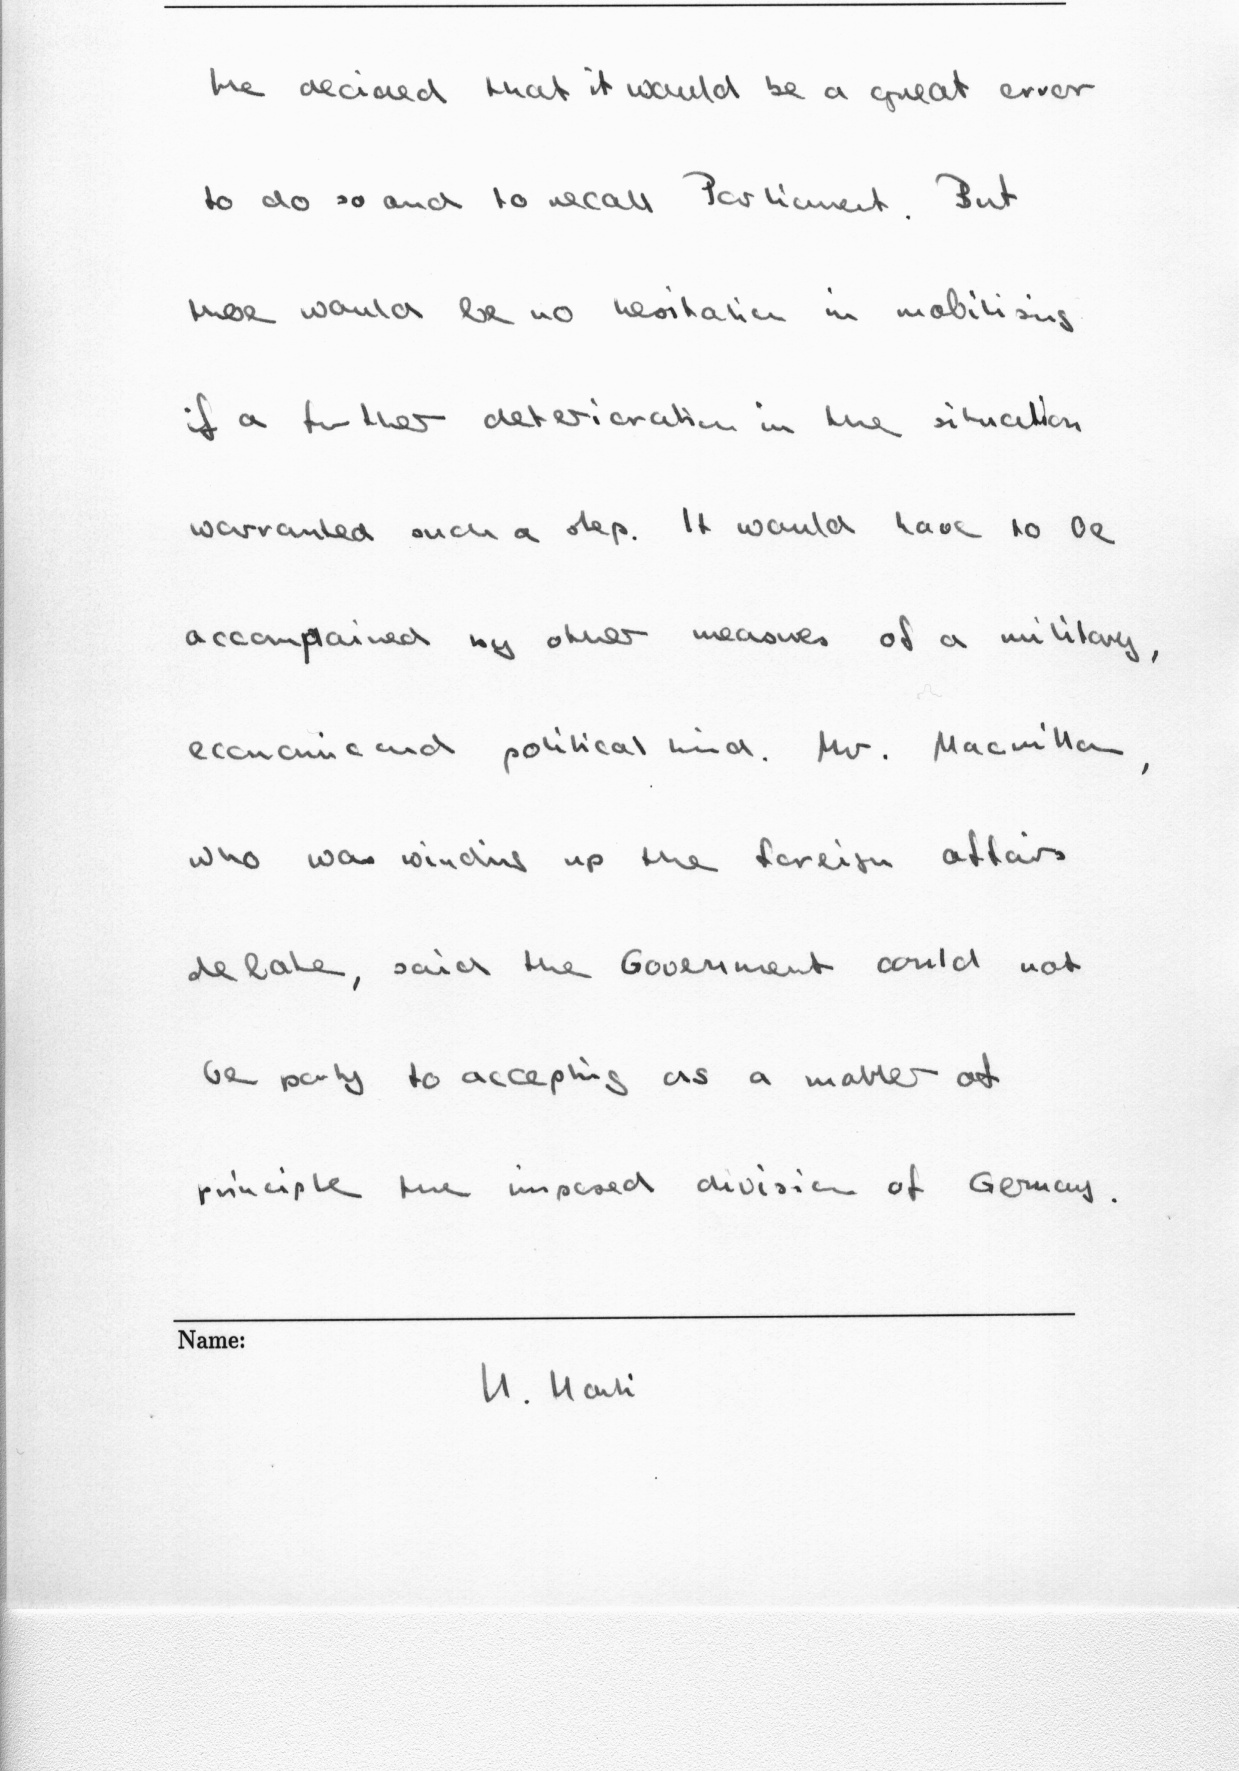 he decided that it would be a great error
to do so and to recall Parliament. But
there would be no hesitation in mobilising
if a further deterioration in the situation
warranted such a step. It would have to be
accompained by other measures of a military,
economic and political kind. Mr. Macmillan,
who was winding up the foreign affairs
debate, said the Government could not
be party to accepting as a matter of
principle the imposed division of Germany.
Name:
U. Marti